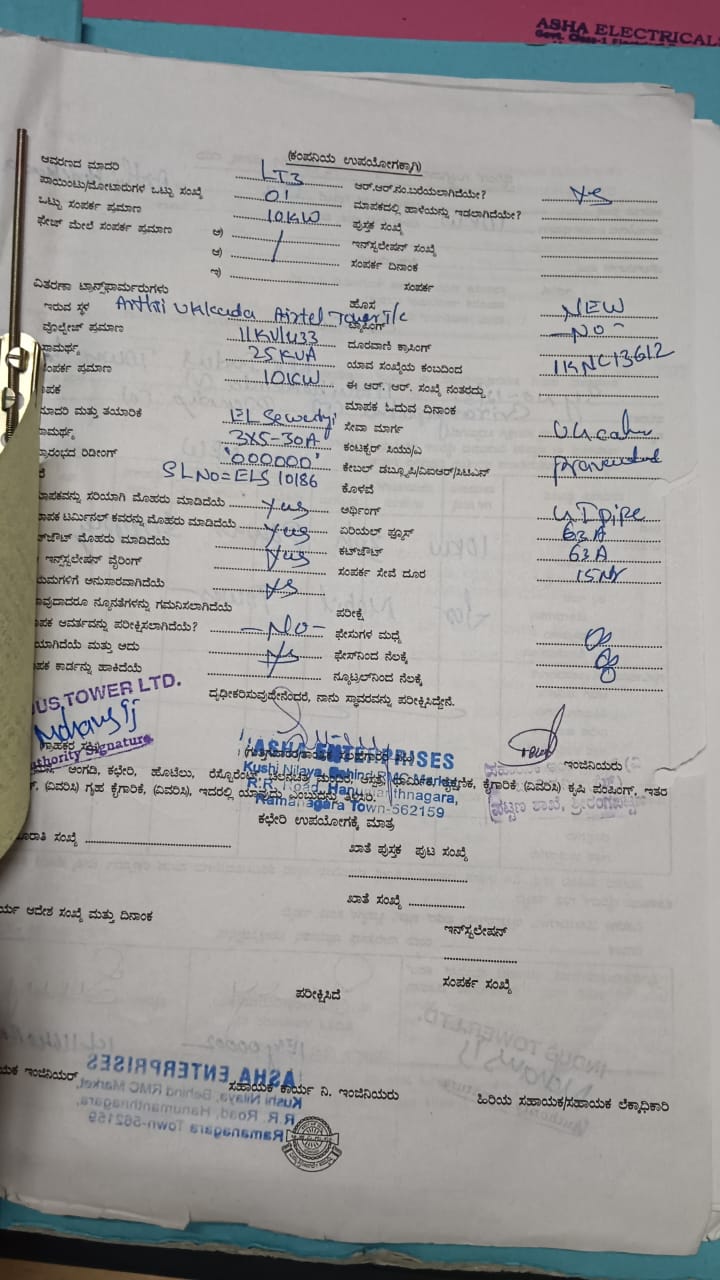 ASHA ELECTRICALS
Govt. Class-1
(ಕಂಪನಿಯ ಉಪಯೋಗಕ್ಕಾಗಿ)
ಆವರಣದ ಮಾದರಿ LT3 ಆರ್.ಆರ್.ನಂ.ಬರೆಯಲಾಗಿದೆಯೇ? Yes
ಪಾಯಿಂಟು/ಮೋಟಾರುಗಳ ಒಟ್ಟು ಸಂಖ್ಯೆ 01 ಮಾಪಕದಲ್ಲಿ ಹಾಳೆಯನ್ನು ಇಡಲಾಗಿದೆಯೇ?
ಒಟ್ಟು ಸಂಪರ್ಕ ಪ್ರಮಾಣ 10KW ಪುಸ್ತಕ ಸಂಖ್ಯೆ
ಫೇಜ್ ಮೇಲೆ ಸಂಪರ್ಕ ಪ್ರಮಾಣ ಅ) ಇನ್‌ಸ್ಟಲೇಷನ್ ಸಂಖ್ಯೆ
ಆ) ಸಂಪರ್ಕ ದಿನಾಂಕ
ಇ) ಸಂಪರ್ಕ
ವಿತರಣಾ ಟ್ರಾನ್ಸ್‌ಫಾರ್ಮರುಗಳು ಹೊಸ NEW
ಇರುವ ಸ್ಥಳ Airtel Tower T/c ಟ್ಯಾಪಿಂಗ್ -NO-
ವೋಲ್ಟೇಜ್ ಪ್ರಮಾಣ 11KV/433 ದೂರವಾಣಿ ಕ್ರಾಸಿಂಗ್
ಸಾಮರ್ಥ್ಯ 25KVA ಯಾವ ಸಂಖ್ಯೆಯ ಕಂಬದಿಂದ 11KNC13612
ಸಂಪರ್ಕ ಪ್ರಮಾಣ 10KW ಈ ಆರ್. ಆರ್. ಸಂಖ್ಯೆ ನಂತರದ್ದು
ಮಾಪಕ ಮಾಪಕ ಓದುವ ದಿನಾಂಕ
ಮಾದರಿ ಮತ್ತು ತಯಾರಿಕೆ EL ಸೇವಾ ಮಾರ್ಗ
ಸಾಮರ್ಥ್ಯ 3X5-30A ಕಂಟಕ್ಟರ್ ಸಿಯು/ಎ
ಪ್ರಾರಂಭದ ರಿಡಿಂಗ್ '000000' ಕೇಬಲ್ ಡಬ್ಲೂಪಿ/ವಿಐಆರ್/ಸಿಟಿಎನ್
SL No= ELS 10186 ಕೊಳವೆ
ಮಾಪಕವನ್ನು ಸರಿಯಾಗಿ ಮೊಹರು ಮಾಡಿದೆಯೆ Yes ಅರ್ಥಿಂಗ್ GI pipe
ಮಾಪಕ ಟರ್ಮಿನಲ್ ಕವರನ್ನು ಮೊಹರು ಮಾಡಿದೆಯೆ Yes ಏರಿಯಲ್ ಫ್ಯೂಸ್ 63A
ಕಟ್‌ಔಟ್ ಮೊಹರು ಮಾಡಿದೆಯೆ Yes ಕಟ್‌ಔಟ್ 63A
ಇನ್‌ಸ್ಟಲೇಷನ್ ವೈರಿಂಗ್ ಸಂಪರ್ಕ ಸೇವೆ ದೂರ
ನಿಯಮಗಳಿಗೆ ಅನುಸಾರವಾಗಿದೆಯೆ Yes
ಯಾವುದಾದರೂ ನ್ಯೂನತೆಗಳನ್ನು ಗಮನಿಸಲಾಗಿದೆಯೆ ಪರೀಕ್ಷೆ
ಮಾಪಕ ಆವರ್ತವನ್ನು ಪರೀಕ್ಷಿಸಲಾಗಿದೆಯೆ? -No- ಫೇಸುಗಳ ಮಧ್ಯೆ
ಯಾಗಿದೆಯೆ ಮತ್ತು ಅದು Yes ಫೇಸ್‌ನಿಂದ ನೆಲಕ್ಕೆ
ಮಾಪಕ ಕಾರ್ಡನ್ನು ಹಾಕಿದೆಯೆ ನ್ಯೂಟ್ರಲ್‌ನಿಂದ ನೆಲಕ್ಕೆ
ದೃಢೀಕರಿಸುವುದೇನೆಂದರೆ, ನಾನು ಸ್ಥಾವರವನ್ನು ಪರೀಕ್ಷಿಸಿದ್ದೇನೆ.
US TOWER LTD.
Authority Signature
ಗ್ರಾಹಕರ ಸಹಿ ಇಂಜಿನಿಯರು
ASHA ENTERPRISES
Kushi Nilaya, Behind RMC Market,
R.R. Road, Hanumanthnagara,
Ramanagara Town-562159
ಅಂಗಡಿ, ಕಛೇರಿ, ಹೊಟೆಲು, ರೆಸ್ಟೋರೆಂಟ್, ಕೈಗಾರಿಕೆ (ವಿವರಿಸಿ) ಕೃಷಿ ಪಂಪಿಂಗ್, ಇತರ
(ವಿವರಿಸಿ) ಗೃಹ ಕೈಗಾರಿಕೆ, (ವಿವರಿಸಿ), ಇದರಲ್ಲಿ ಯಾವುದು ಎಂಬುದನ್ನು ತಿಳಿಸಿ.
ಕಛೇರಿ ಉಪಯೋಗಕ್ಕೆ ಮಾತ್ರ
ಸಂಖ್ಯೆ ಖಾತೆ ಪುಸ್ತಕ ಪುಟ ಸಂಖ್ಯೆ
ಖಾತೆ ಸಂಖ್ಯೆ
ಕಾರ್ಯ ಆದೇಶ ಸಂಖ್ಯೆ ಮತ್ತು ದಿನಾಂಕ
ಇನ್‌ಸ್ಟಲೇಷನ್
ಸಂಪರ್ಕ ಸಂಖ್ಯೆ
ಪರೀಕ್ಷಿಸಿದೆ
ಸಹಾಯಕ ಇಂಜಿನಿಯರ್ ಸಹಾಯಕ ಕಾರ್ಯ ನಿ. ಇಂಜಿನಿಯರು ಹಿರಿಯ ಸಹಾಯಕ/ಸಹಾಯಕ ಲೆಕ್ಕಾಧಿಕಾರಿ